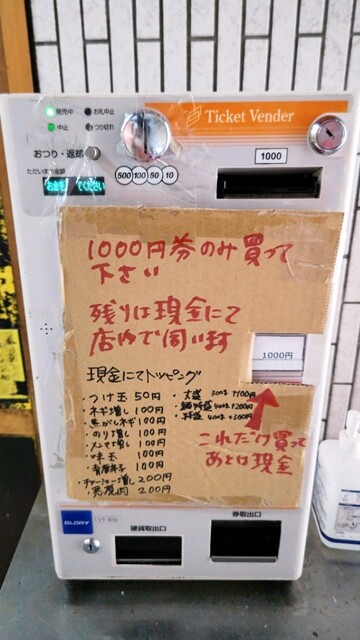 発売中
お札中止
中止
つり切れ
Ticket Vender
おつり・返却
1000
500 100 50 10
お金を
てください
1000円券のみ買って
下さい
残りは現金にて
店内で伺います
1000円
現金にてトッピング
・つけ玉 50円
・ネギ増し 100円
・焦がしネギ 100円
・のり増し 100円
・メンマ増し 100円
・味玉 100円
・青唐辛子 100円
・チャーシュー増し 200円
200円
・大盛 300g +100円
400g +200円
+300円
これだけ買って
あとは現金
GLORY
硬貨取出口
券取出口